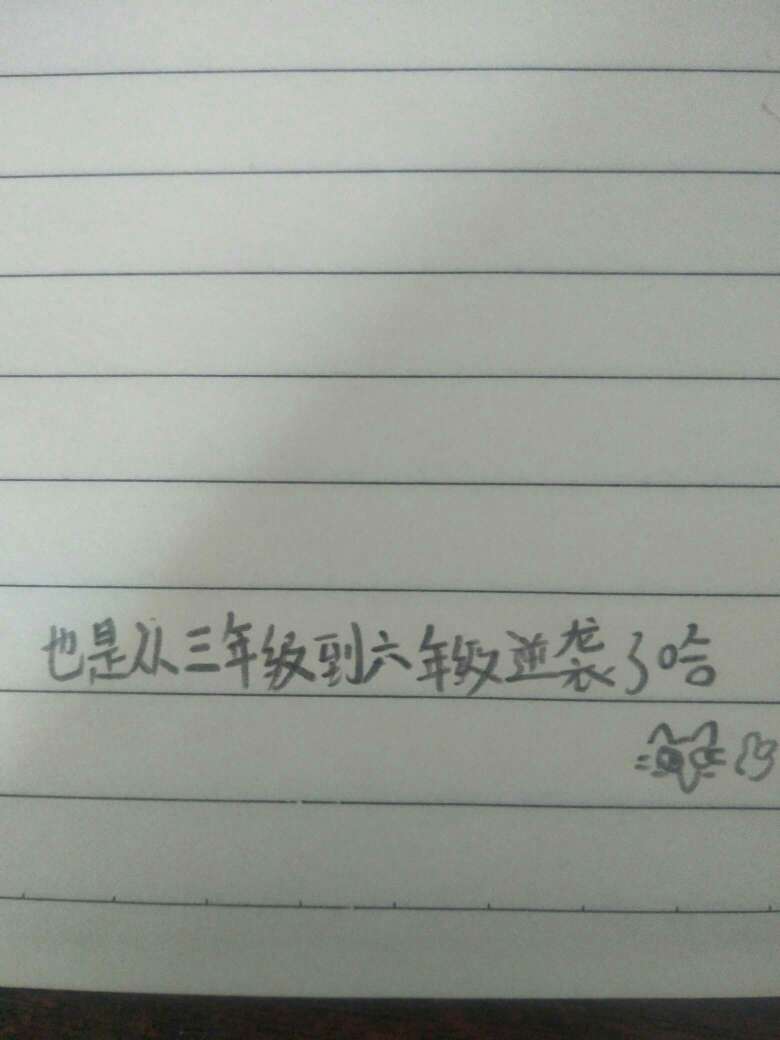 也是从三年级到六年级逆袭了哈